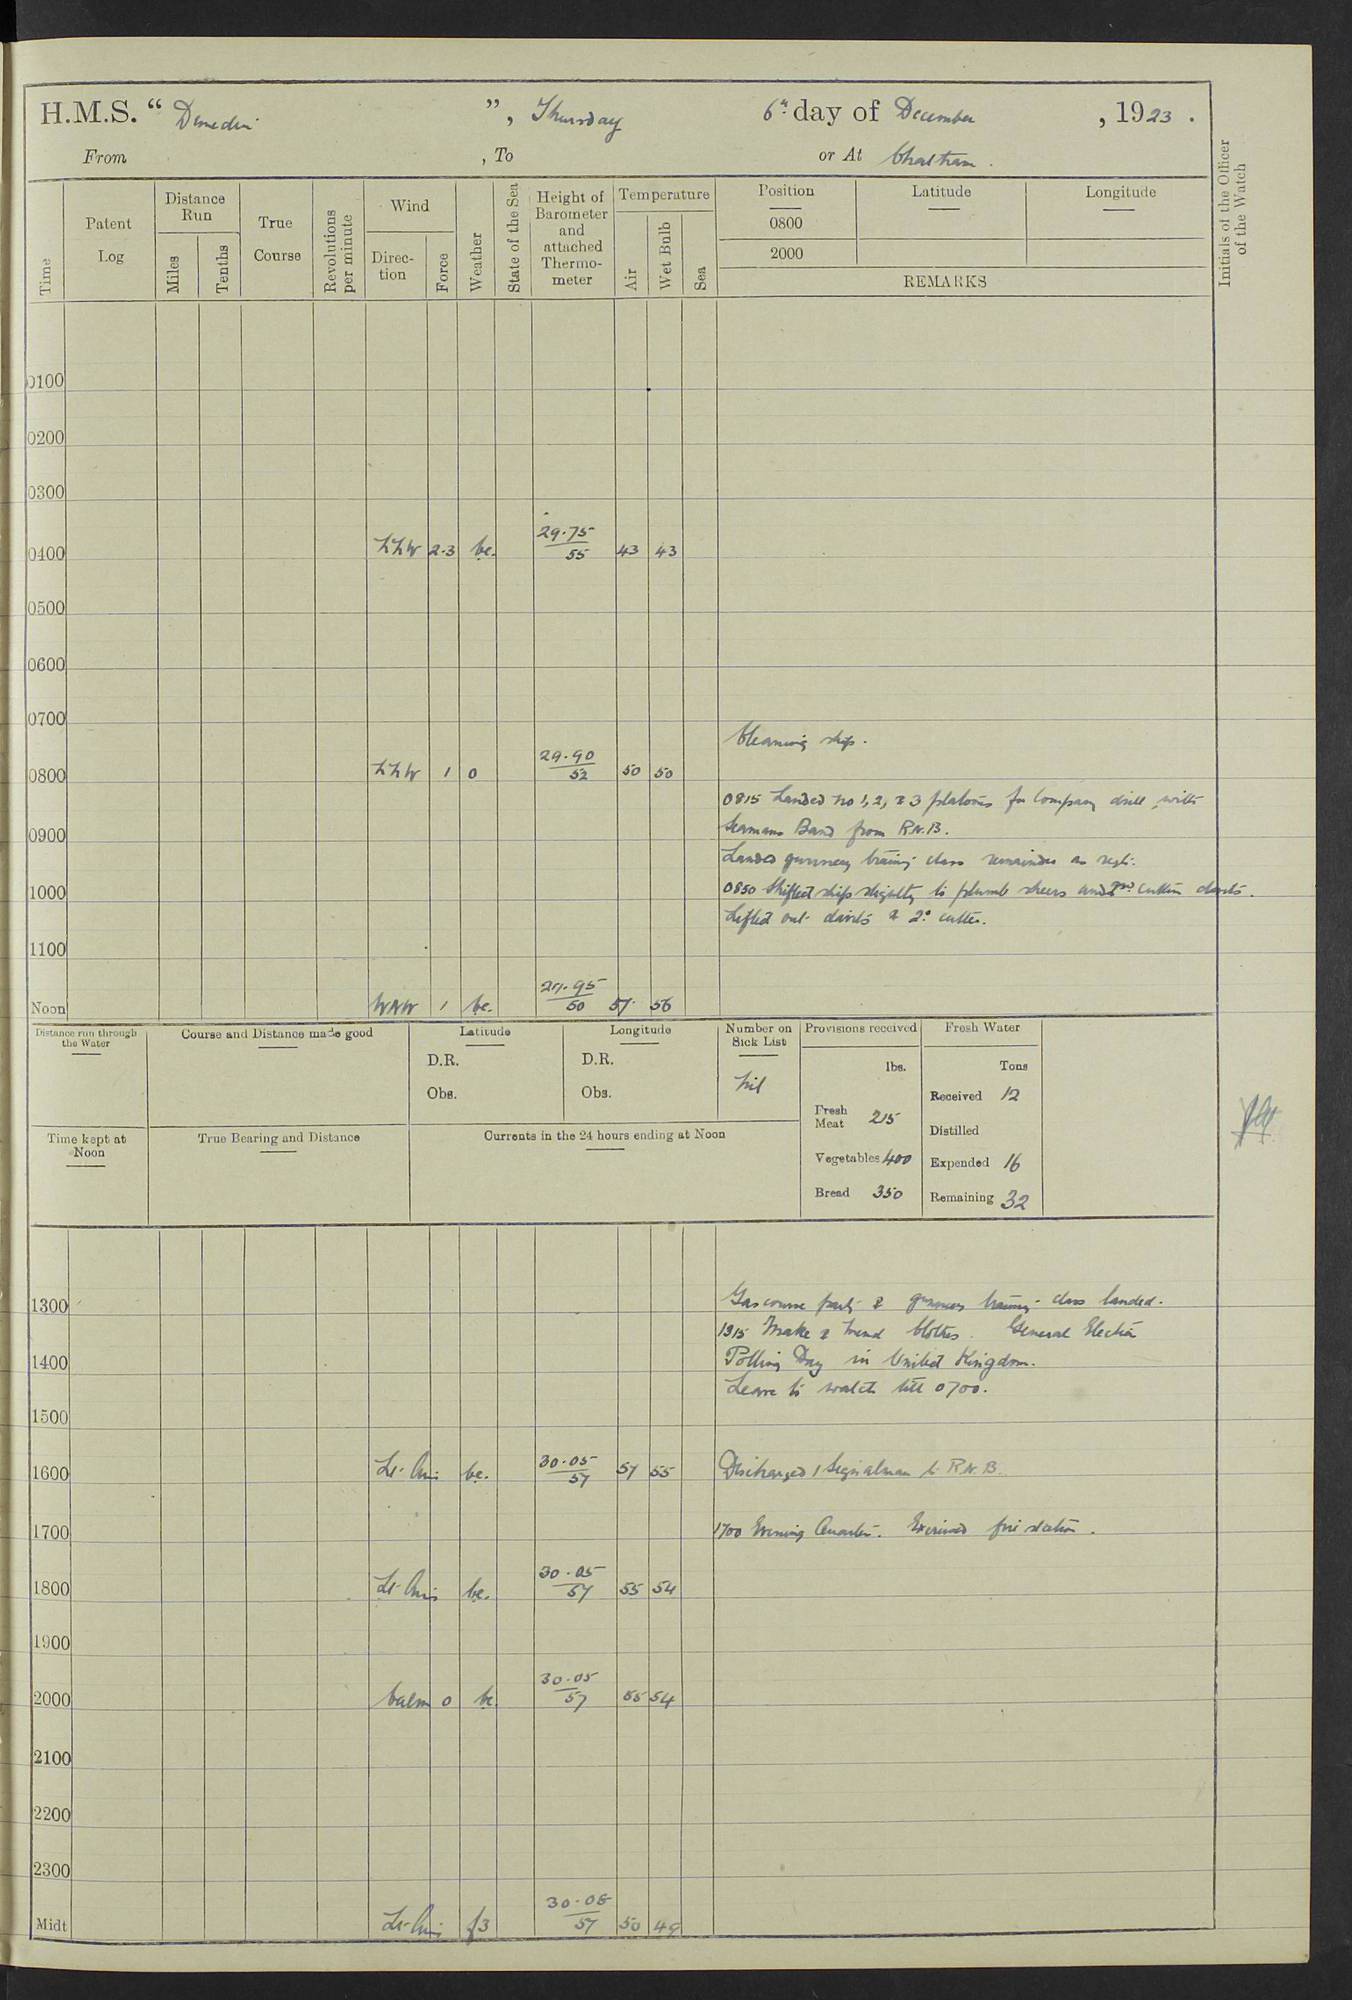 H.M.S. “ Dunedin ”, Thursday 6th day of December , 1923 .
From , To or At Chatham .
Time
Patent Log
Distance Run
Miles
Tenths
True Course
Revolutions per minute
Wind
Direc-tion
Force
Weather
State of the Sea
Height of Barometer and attached Thermo-meter
Temperature
Air
Wet Bulb
Sea
Position Latitude Longitude
0800
2000
REMARKS
Initials of the Officer of the Watch
0100
0200
0300
0400 NNW 2.3 bc. 29.75/55 43 43
0500
0600
0700
Cleaning ship.
0800 NNW 1 o 29.90/52 50 50
0815 Landed No 1, 2, & 3 platoons for Company drill with
0900 Seamans Band from R.N.B.
Landed gunnery training class remainder as reqd.
1000 0850 Shifted ship slightly to plumb sheers and 2nd cutters davits.
Lifted out davits & 2nd cutter.
1100
Noon WNW 1 bc. 29.95/60 57 56
Distance run through the Water
Course and Distance made good
Latitude
D.R.
Obs.
Longitude
D.R.
Obs.
Number on Sick List
Nil
Provisions received
lbs.
Fresh Meat 215
Vegetables 400
Bread 350
Fresh Water
Tons
Received 12
Distilled
Expended 16
Remaining 32
Time kept at Noon
True Bearing and Distance
Currents in the 24 hours ending at Noon
1300 Gas course party & gunnery training class landed.
1315 Make & Mend Clothes. General Election
1400 Polling Day in United Kingdom.
Leave to watch till 0700.
1500
1600 Lt. Airs bc. 30.05/57 57 55 Discharged 1 Signalman to R.N.B.
1700 1700 Evening Quarters. Exercised fire stations.
1800 Lt. Airs bc. 30.05/57 55 54
1900
2000 Calm 0 bc. 30.05/57 55 54
2100
2200
2300
Midt Lt. Airs f3 30.08/57 50 49